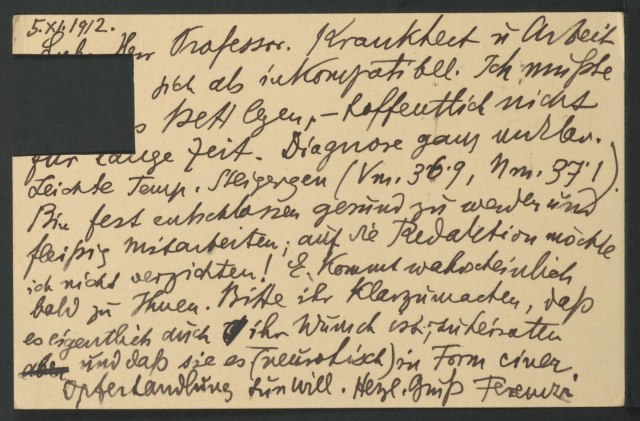 5.XI.1912.
Lieb. Herr Professor. Krankheit u Arbeit
sich als inkompatibel. Ich mußte
s Bett legen, – hoffentlich nicht
für lange Zeit. Diagnose ganz unklar.
Leichte Temp. Steigergen (Vm. 36·9, Nm. 37·1)
Bin fest entschlossen gesund zu werden und
fleißig mitarbeiten; auf die Redaktion möchte
ich nicht verzichten! E. kommt wahrscheinlich
bald zu Ihnen. Bitte ihr klarzumachen, daß
es eigentlich auch ihr Wunsch ist, zu heiraten
und daß sie es (neurotisch) in Form einer
Opferhandlung tun will. Herzl. Gruß Ferenczi